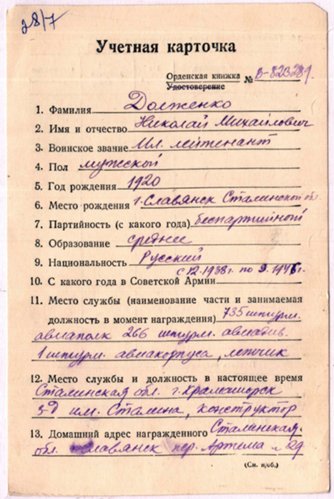 28/7
Учетная карточка
Орденская книжка
Удостоверение № В-823289
1. Фамилия Долженко
2. Имя и отчество Николай Михайлович
3. Воинское звание Мл. лейтенант
4. Пол мужской
5. Год рождения 1920
6. Место рождения г. Славянск Сталинской обл
7. Партийность (с какого года) беспартийный
8. Образование среднее
9. Национальность Русский
10. С какого года в Советской Армии с 12.1938г. по 9.1946г.
11. Место службы (наименование части и занимаемая
должность в момент награждения) 735 штурм.
авиаполк 266 штурм. авиадив.
1 штурм. авиакорпуса, летчик
12. Место службы и должность в настоящее время
Сталинская обл. г. Краматорск
з-д им. Сталина, конструктор
13. Домашний адрес награжденного Сталинская
обл. Славянск пер. Артема
(См. н/об.)